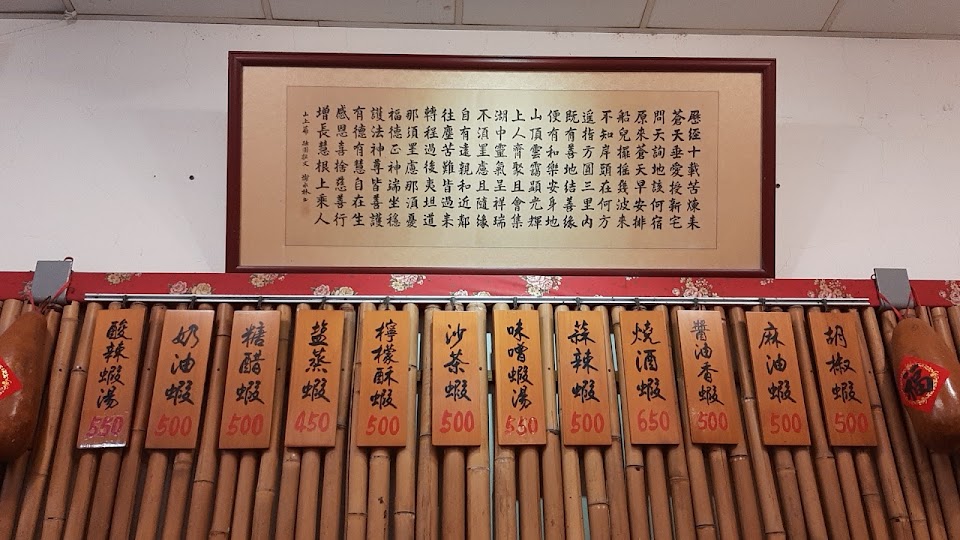 歷經十載苦煉來
蒼天垂愛授新宅
問天詢地該何宿
原來蒼天早安排
船兒搖搖幾波來
不知岸頭在何方
遥指方圓三里內
既有善地結善緣
便有和樂安身地
山頂雲靄顯光輝
上人齊聚且會集
湖中靈氣呈祥瑞
不須罣慮且隨緣
自有遠親和近鄰
往塵苦難皆過來
轉程過後夷坦道
那須罣慮那須憂
福德正神端坐穩
護法神尊皆善護
有德有慧自在生
感恩喜捨慈善行
增長慧根上乘人
胡椒蝦 500
麻油蝦 500
醬油香蝦 500
燒酒蝦 650
蒜辣蝦 500
味噌蝦湯 550
沙茶蝦 500
檸檬酥蝦 500
鹽蒸蝦 450
糖醋蝦 500
奶油蝦 500
酸辣蝦湯 550